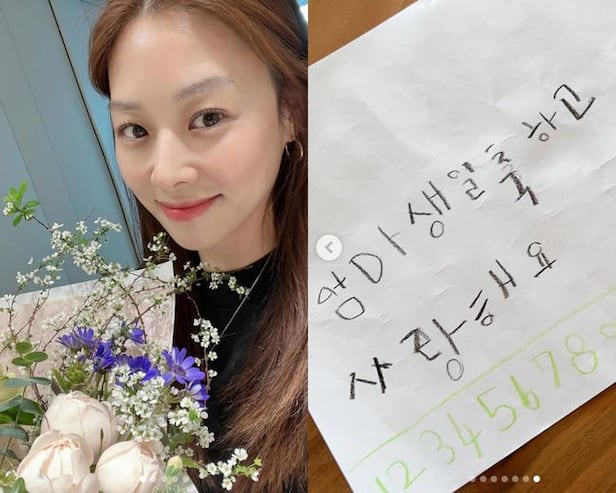 엄마생일축하고
사랑해요
12345678